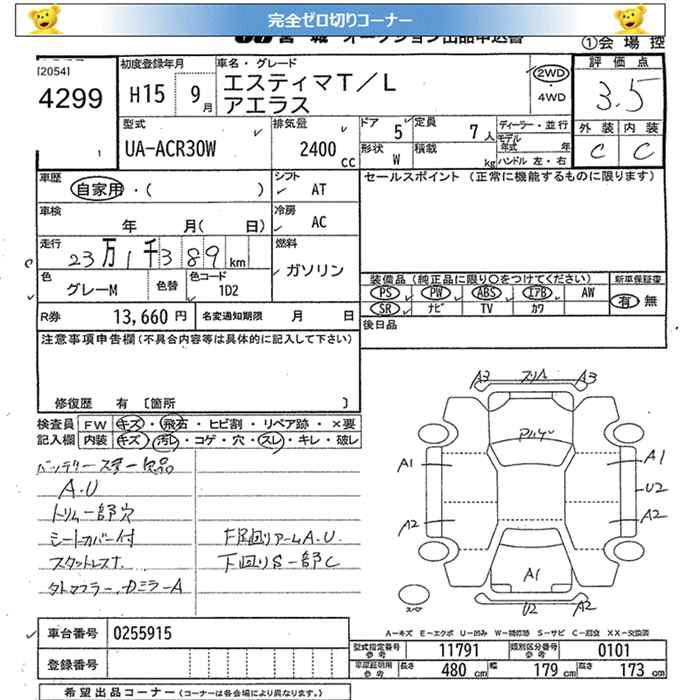 完全ゼロ切りコーナー
宮城 オークション出品申込書
①会場控
[2054]
4299
1
初度登録年月
H15 9月
車名・グレード
エスティマT/L
アエラス
2WD
・4WD
評価点
3.5
外装 内装
C C
型式
UA-ACR30W
排気量
2400cc
ドア 5
形状 W
定員 7人
積載 kg
ディーラー・並行
モデル年式 年
ハンドル 左・右
車歴
自家用・( )
車検
年 月( 日)
走行
23万1千389km
色
グレーM
色替
色コード
1D2
シフト
AT
冷房
AC
燃料
ガソリン
セールスポイント (正常に機能するものに限ります)
装備品 (純正品に限り○をつけてください)
PS PW ABS エアB AW
SR ナビ TV カワ
新車保証書
有・無
後日品
R券 13,660円
名変通知期限 月 日
注意事項申告欄(不具合内容等は具体的に記入して下さい)
修復歴 有 〔箇所 〕
検査員記入欄
FW キズ・飛石・ヒビ割・リペア跡・×要
内装 キズ・汚レ・コゲ・穴・スレ・キレ・破レ
バッテリーステー欠品
A.U
トリム一部穴
シートカバー付
スタットレスT.
タトマフラー、Dミラー A
F足回りアームA.U.
下回りS一部C
A3 フリム A3
アルミ
A1 A1
U2
A2 A2
A1
スペア
U2 A2
A-キズ E-エクボ U-凹み W-補修跡 S-サビ C-腐食 XX-交換済
車台番号 0255915
登録番号
型式指定番号参考 11791
類別区分番号参考 0101
車庫証明用参考 長さ 480cm 幅 179cm 高さ 173cm
希望出品コーナー (コーナーは各会場により異なります。)